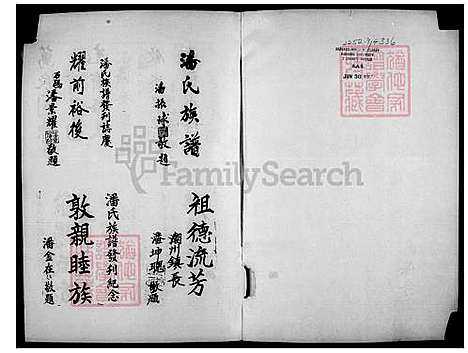 潘氏族譜
潘振球敬題
潘氏族譜發刊誌慶
耀前裕後
潘景耀敬題
祖德流芳
潮州鎮長
潘坤 敬題
潘氏族譜發刊紀念
敦親睦族
潘金在敬題
FamilySearch
JUN 30